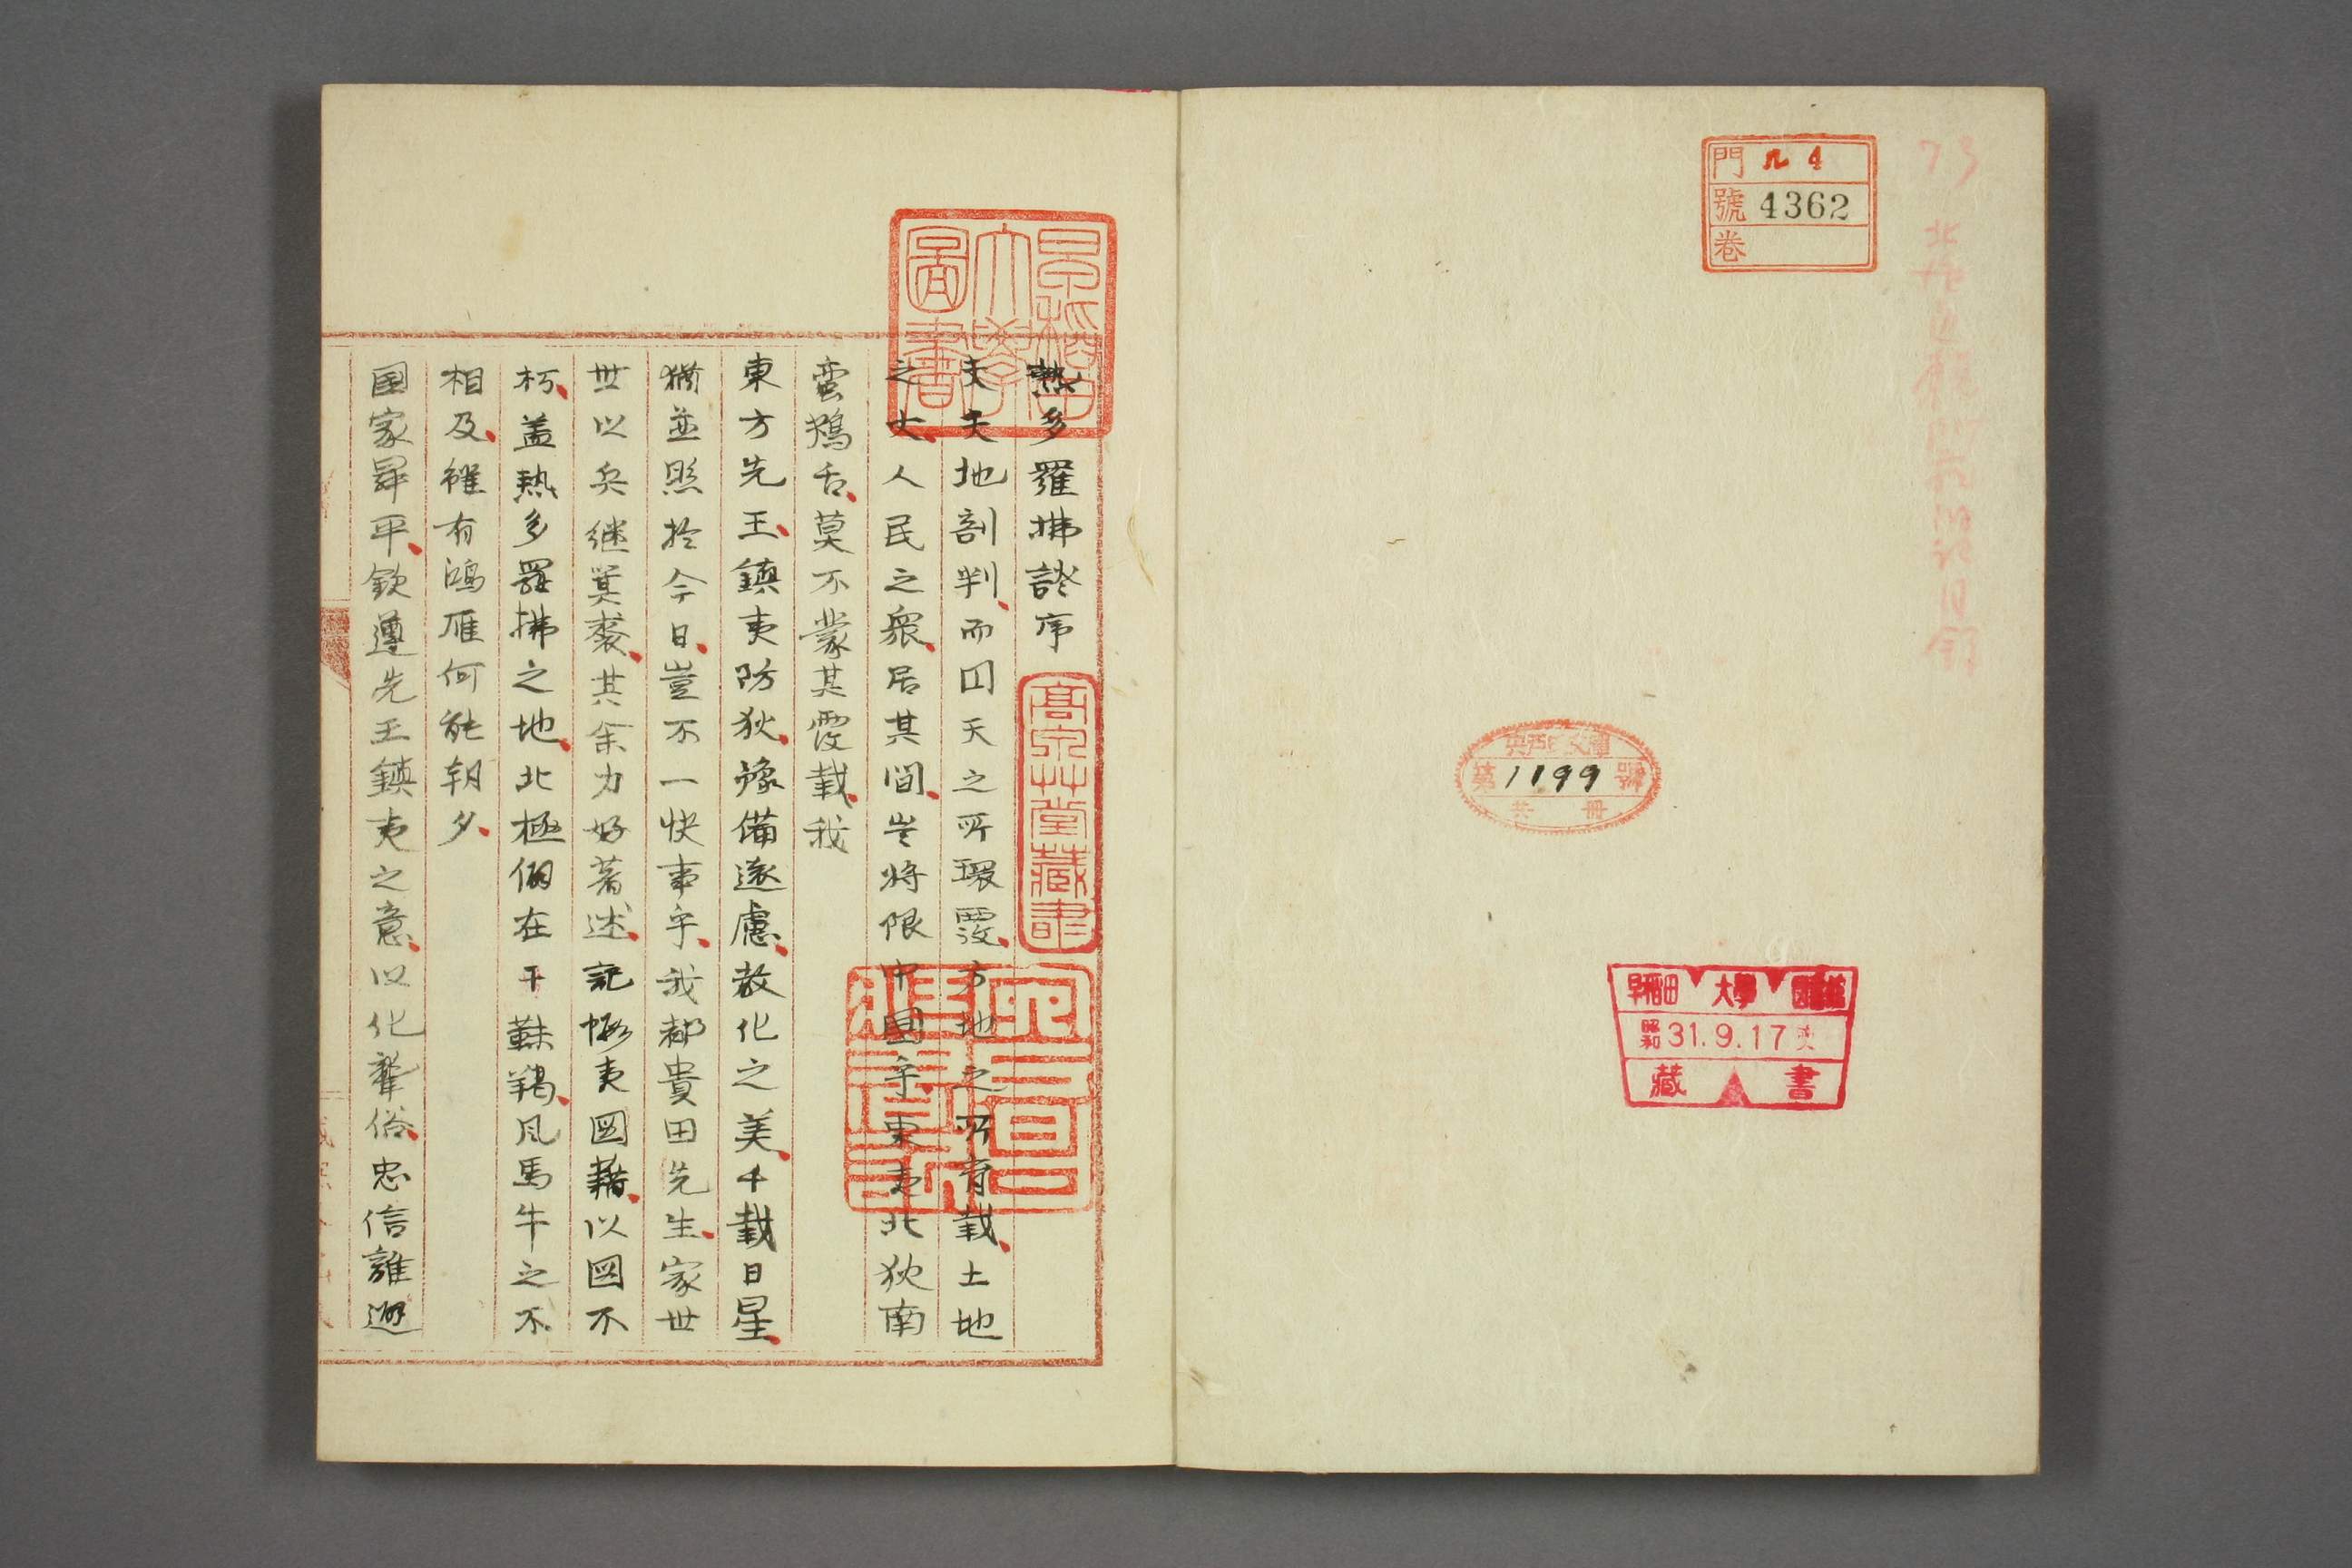 門 ル 4
號 4362
卷
73
第1199號
共 冊
早稲田大學圖書館
昭和31.9.17
藏書
早稲田大學圖書
熱多羅拂諺序
夫天地剖判、而国天之所環覆、方地之所育載、土地
之大、人民之衆、居其間、豈将限中國乎、東夷北狄南
蛮鴂舌、莫不蒙其覆載、我
東方先王、鎮夷防狄、豫備遠慮、教化之美、千載日星、
猶並照於今日、豈不一快事乎、我都貴田先生、家世
世以兵継箕裘、其余力好著述、記輶夷國籍、以國不
朽、盖熱多羅拂之地、北極僻在干靺鞨、風馬牛之不
相及、雖有鴻雁何能朝夕、
国家昇平、欽遵先王鎮夷之意、以化鞏俗、忠信誰遯
髙泉艸堂藏書